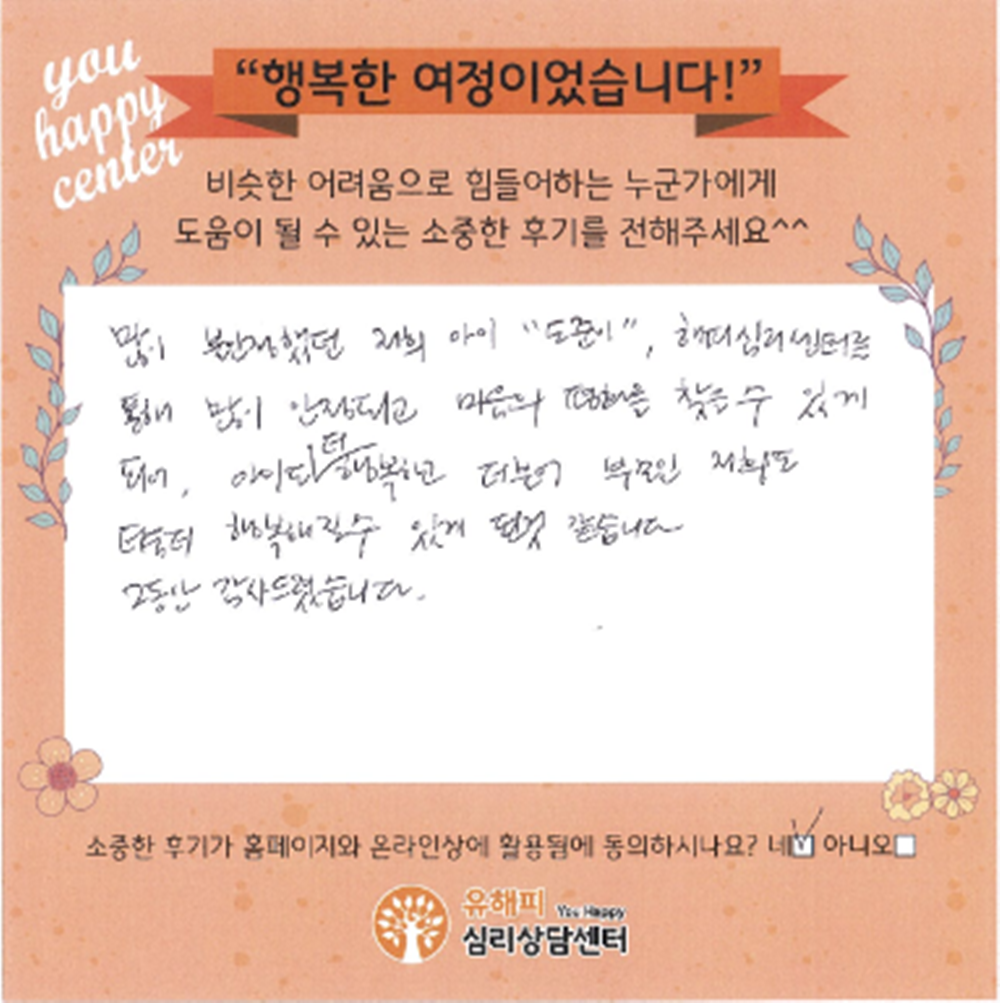 you
happy
center
“행복한 여정이었습니다!”
비슷한 어려움으로 힘들어하는 누군가에게
도움이 될 수 있는 소중한 후기를 전해주세요^^
많이 불안정했던 저희 아이 "도준이", 해피심리센터를
통해 많이 안정되고 마음의 평화를 찾을 수 있게
되어, 아이도 더 행복하고 더불어 부모인 저희도
더욱더 행복해질수 있게 된것 같습니다
그동안 감사드렸습니다.
소중한 후기가 홈페이지와 온라인상에 활용됨에 동의하시나요? 네 아니오
유해피 You Happy
심리상담센터